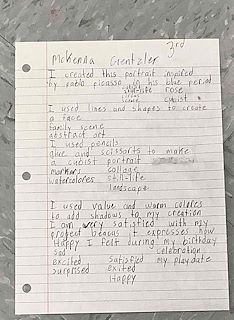 3rd
McKenna Grentzler
I created this portrait inspired
by pablo picasso in his blue period
still-life rose
scene cubist
I used lines and shapes to create
a face
family scene
abstract art
I used pencils
glue and scissorts to make
a cubist portrait
markers collage
watercolores still-life
landscape
I used value and warm colores
to add shadows to my creation
I am very satisfied with my
project becaus it expresses how
Happy I felt during my birthday
sad celebration
excited satisfied my playdate
surprised exited
Happy